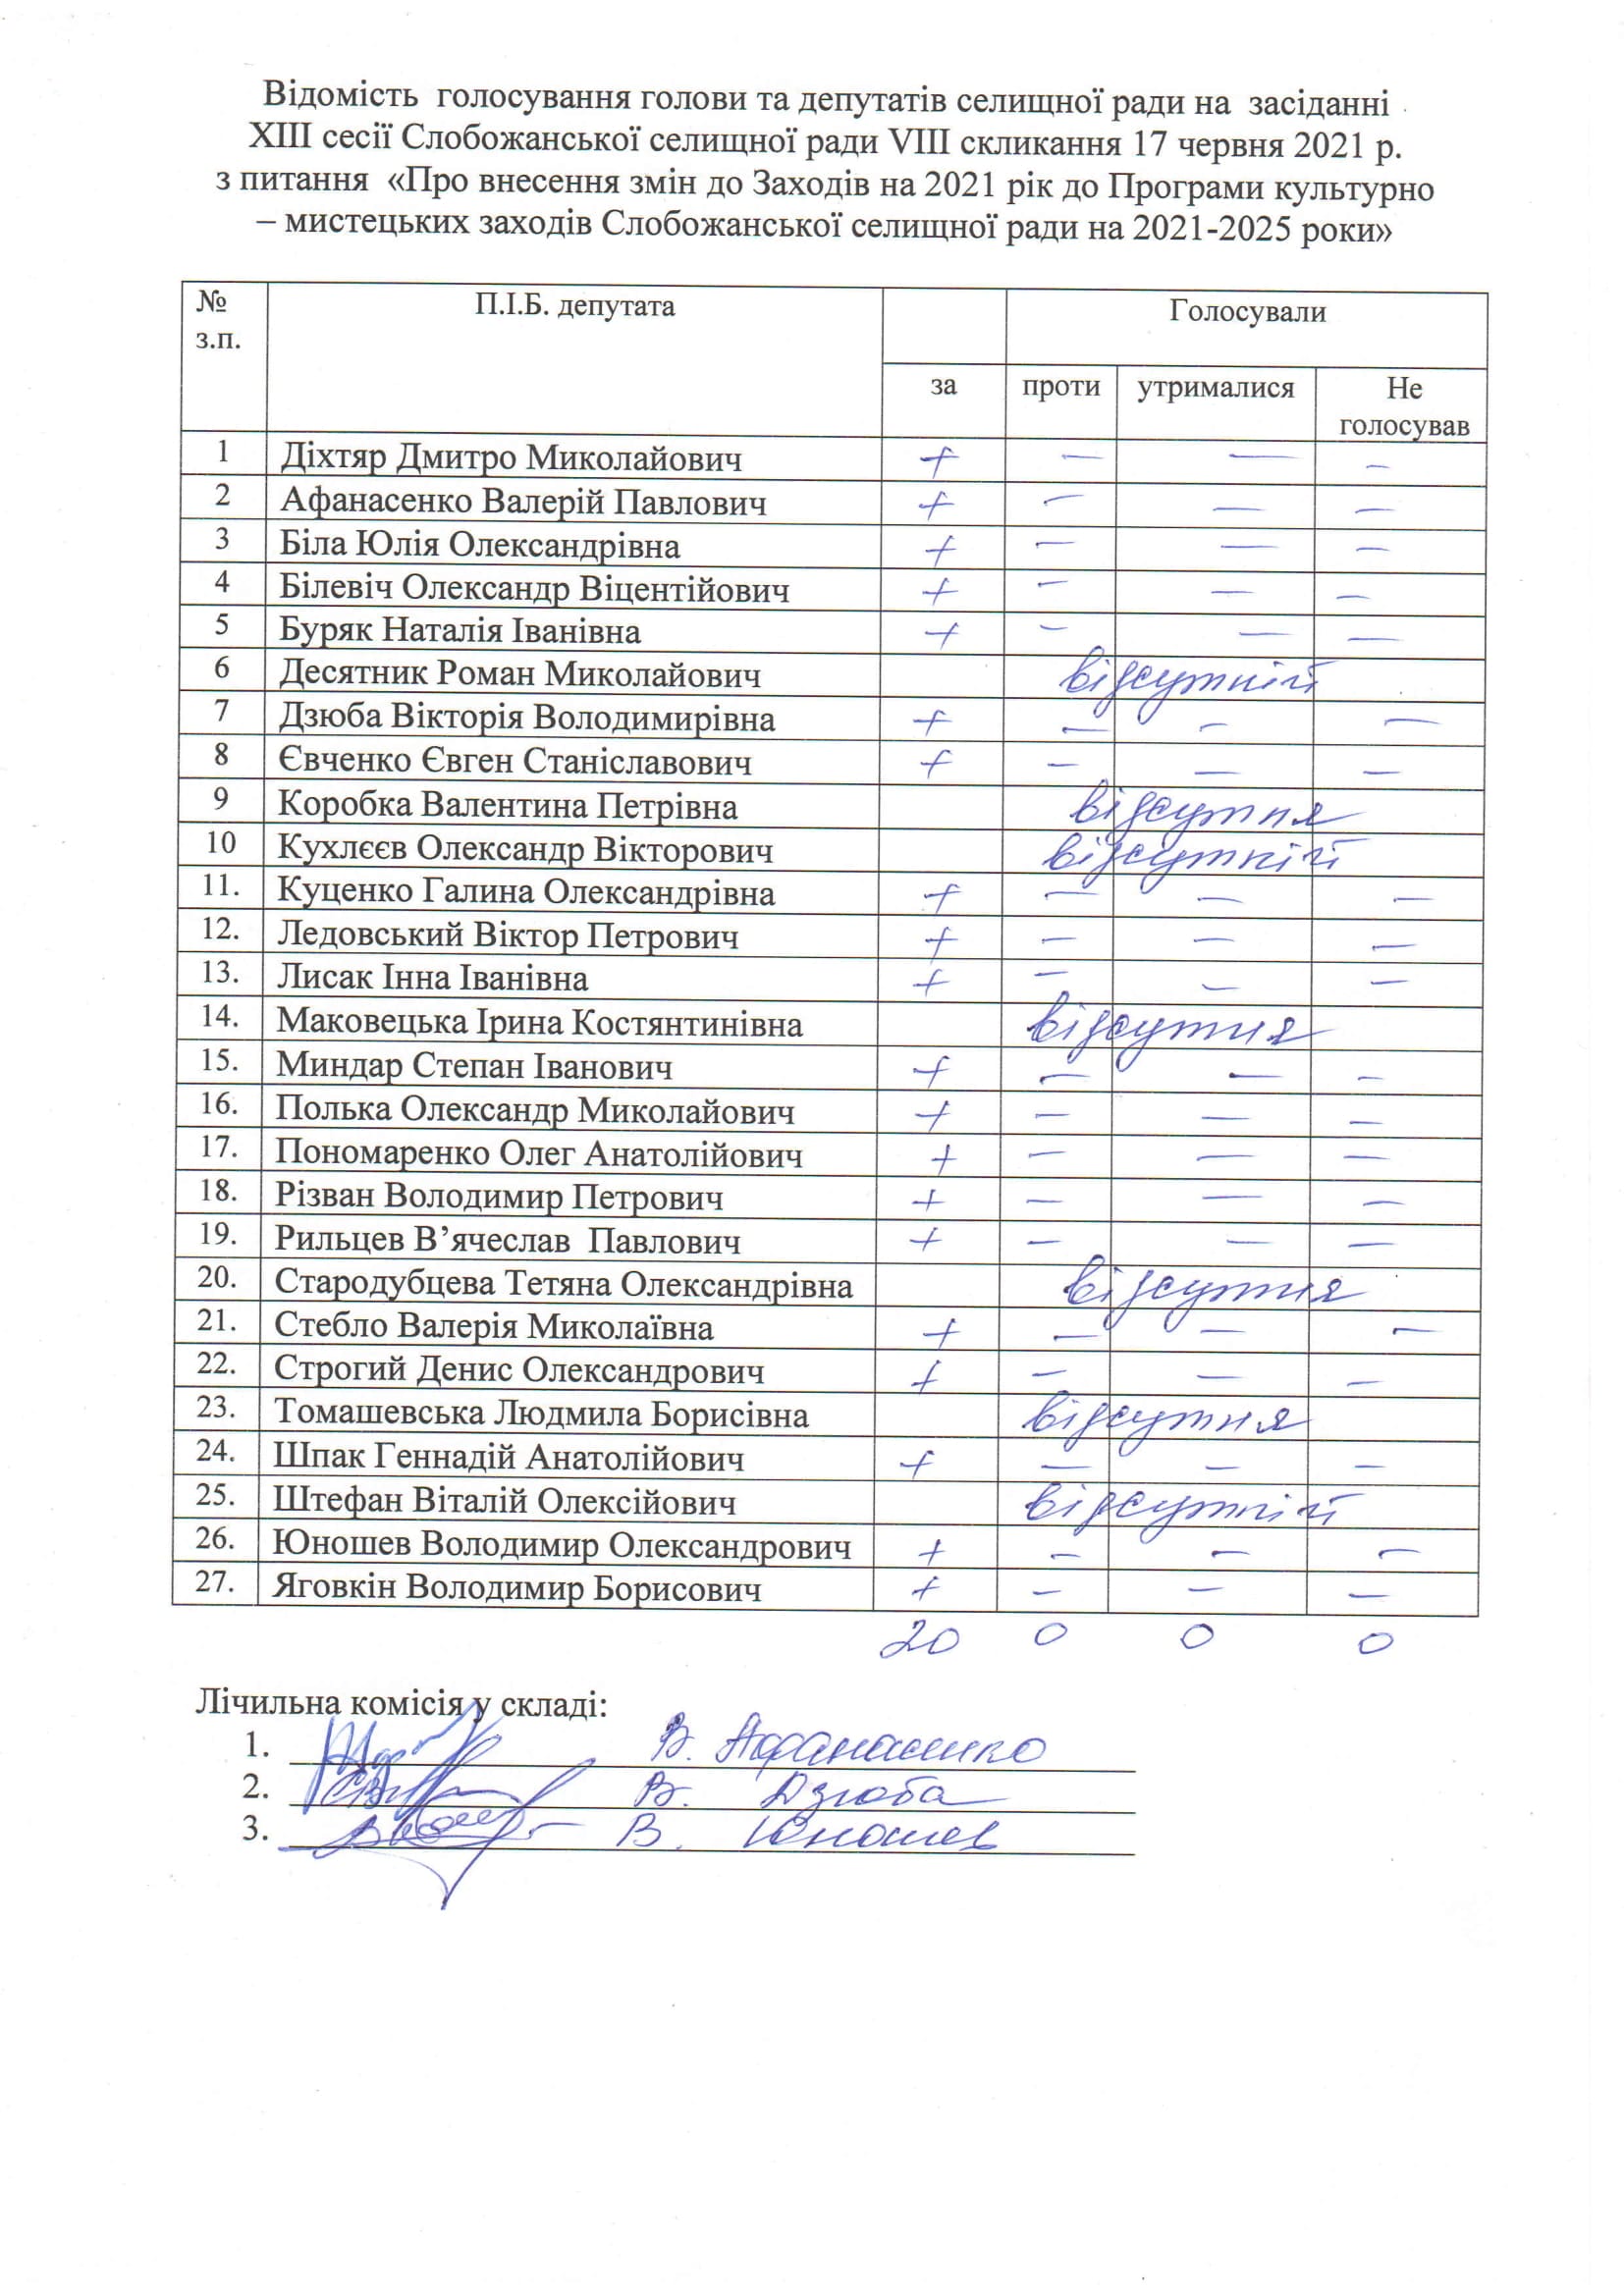 Відомість голосування голови та депутатів селищної ради на засіданні
XIII сесії Слобожанської селищної ради VIII скликання 17 червня 2021 р.
з питання «Про внесення змін до Заходів на 2021 рік до Програми культурно
– мистецьких заходів Слобожанської селищної ради на 2021-2025 роки»
№ з.п. П.І.Б. депутата Голосували
за проти утрималися Не голосував
1 Діхтяр Дмитро Миколайович + – – –
2 Афанасенко Валерій Павлович + – – –
3 Біла Юлія Олександрівна + – – –
4 Білевіч Олександр Віцентійович + – – –
5 Буряк Наталія Іванівна + – – –
6 Десятник Роман Миколайович відсутній
7 Дзюба Вікторія Володимирівна + – – –
8 Євченко Євген Станіславович + – – –
9 Коробка Валентина Петрівна відсутня
10 Кухлєєв Олександр Вікторович відсутній
11. Куценко Галина Олександрівна + – – –
12. Ледовський Віктор Петрович + – – –
13. Лисак Інна Іванівна + – – –
14. Маковецька Ірина Костянтинівна відсутня
15. Миндар Степан Іванович + – – –
16. Полька Олександр Миколайович + – – –
17. Пономаренко Олег Анатолійович + – – –
18. Різван Володимир Петрович + – – –
19. Рильцев В’ячеслав Павлович + – – –
20. Стародубцева Тетяна Олександрівна відсутня
21. Стебло Валерія Миколаївна + – – –
22. Строгий Денис Олександрович + – – –
23. Томашевська Людмила Борисівна відсутня
24. Шпак Геннадій Анатолійович + – – –
25. Штефан Віталій Олексійович відсутній
26. Юношев Володимир Олександрович + – – –
27. Яговкін Володимир Борисович + – – –
20 0 0 0
Лічильна комісія у складі:
1. В. Афанасенко
2. В. Дзюба
3. В. Юношев